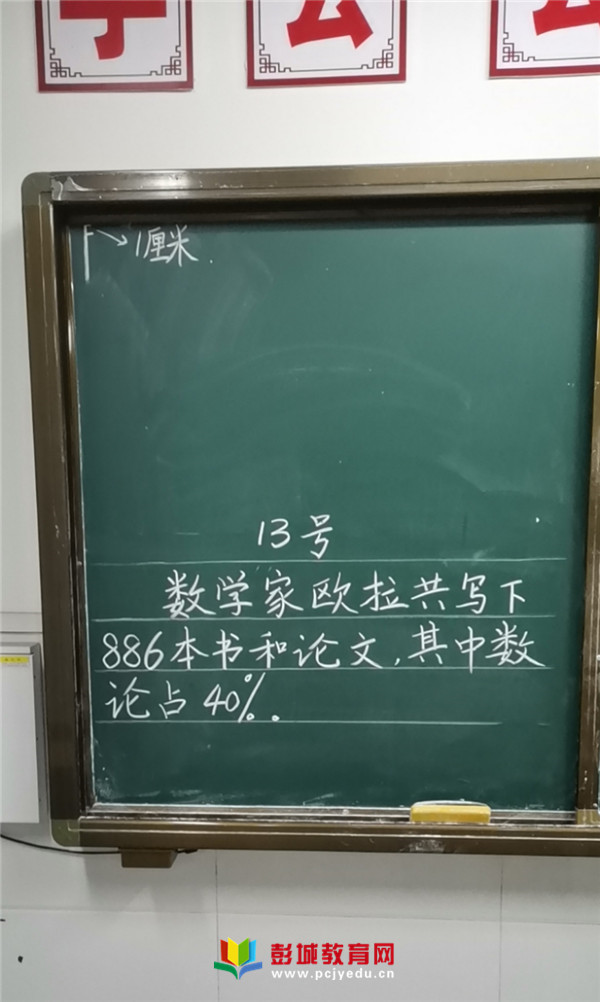 公
1厘米
13号
数学家欧拉共写下
886本书和论文,其中数
论占40%.
彭城教育网
www.pcjyedu.cn